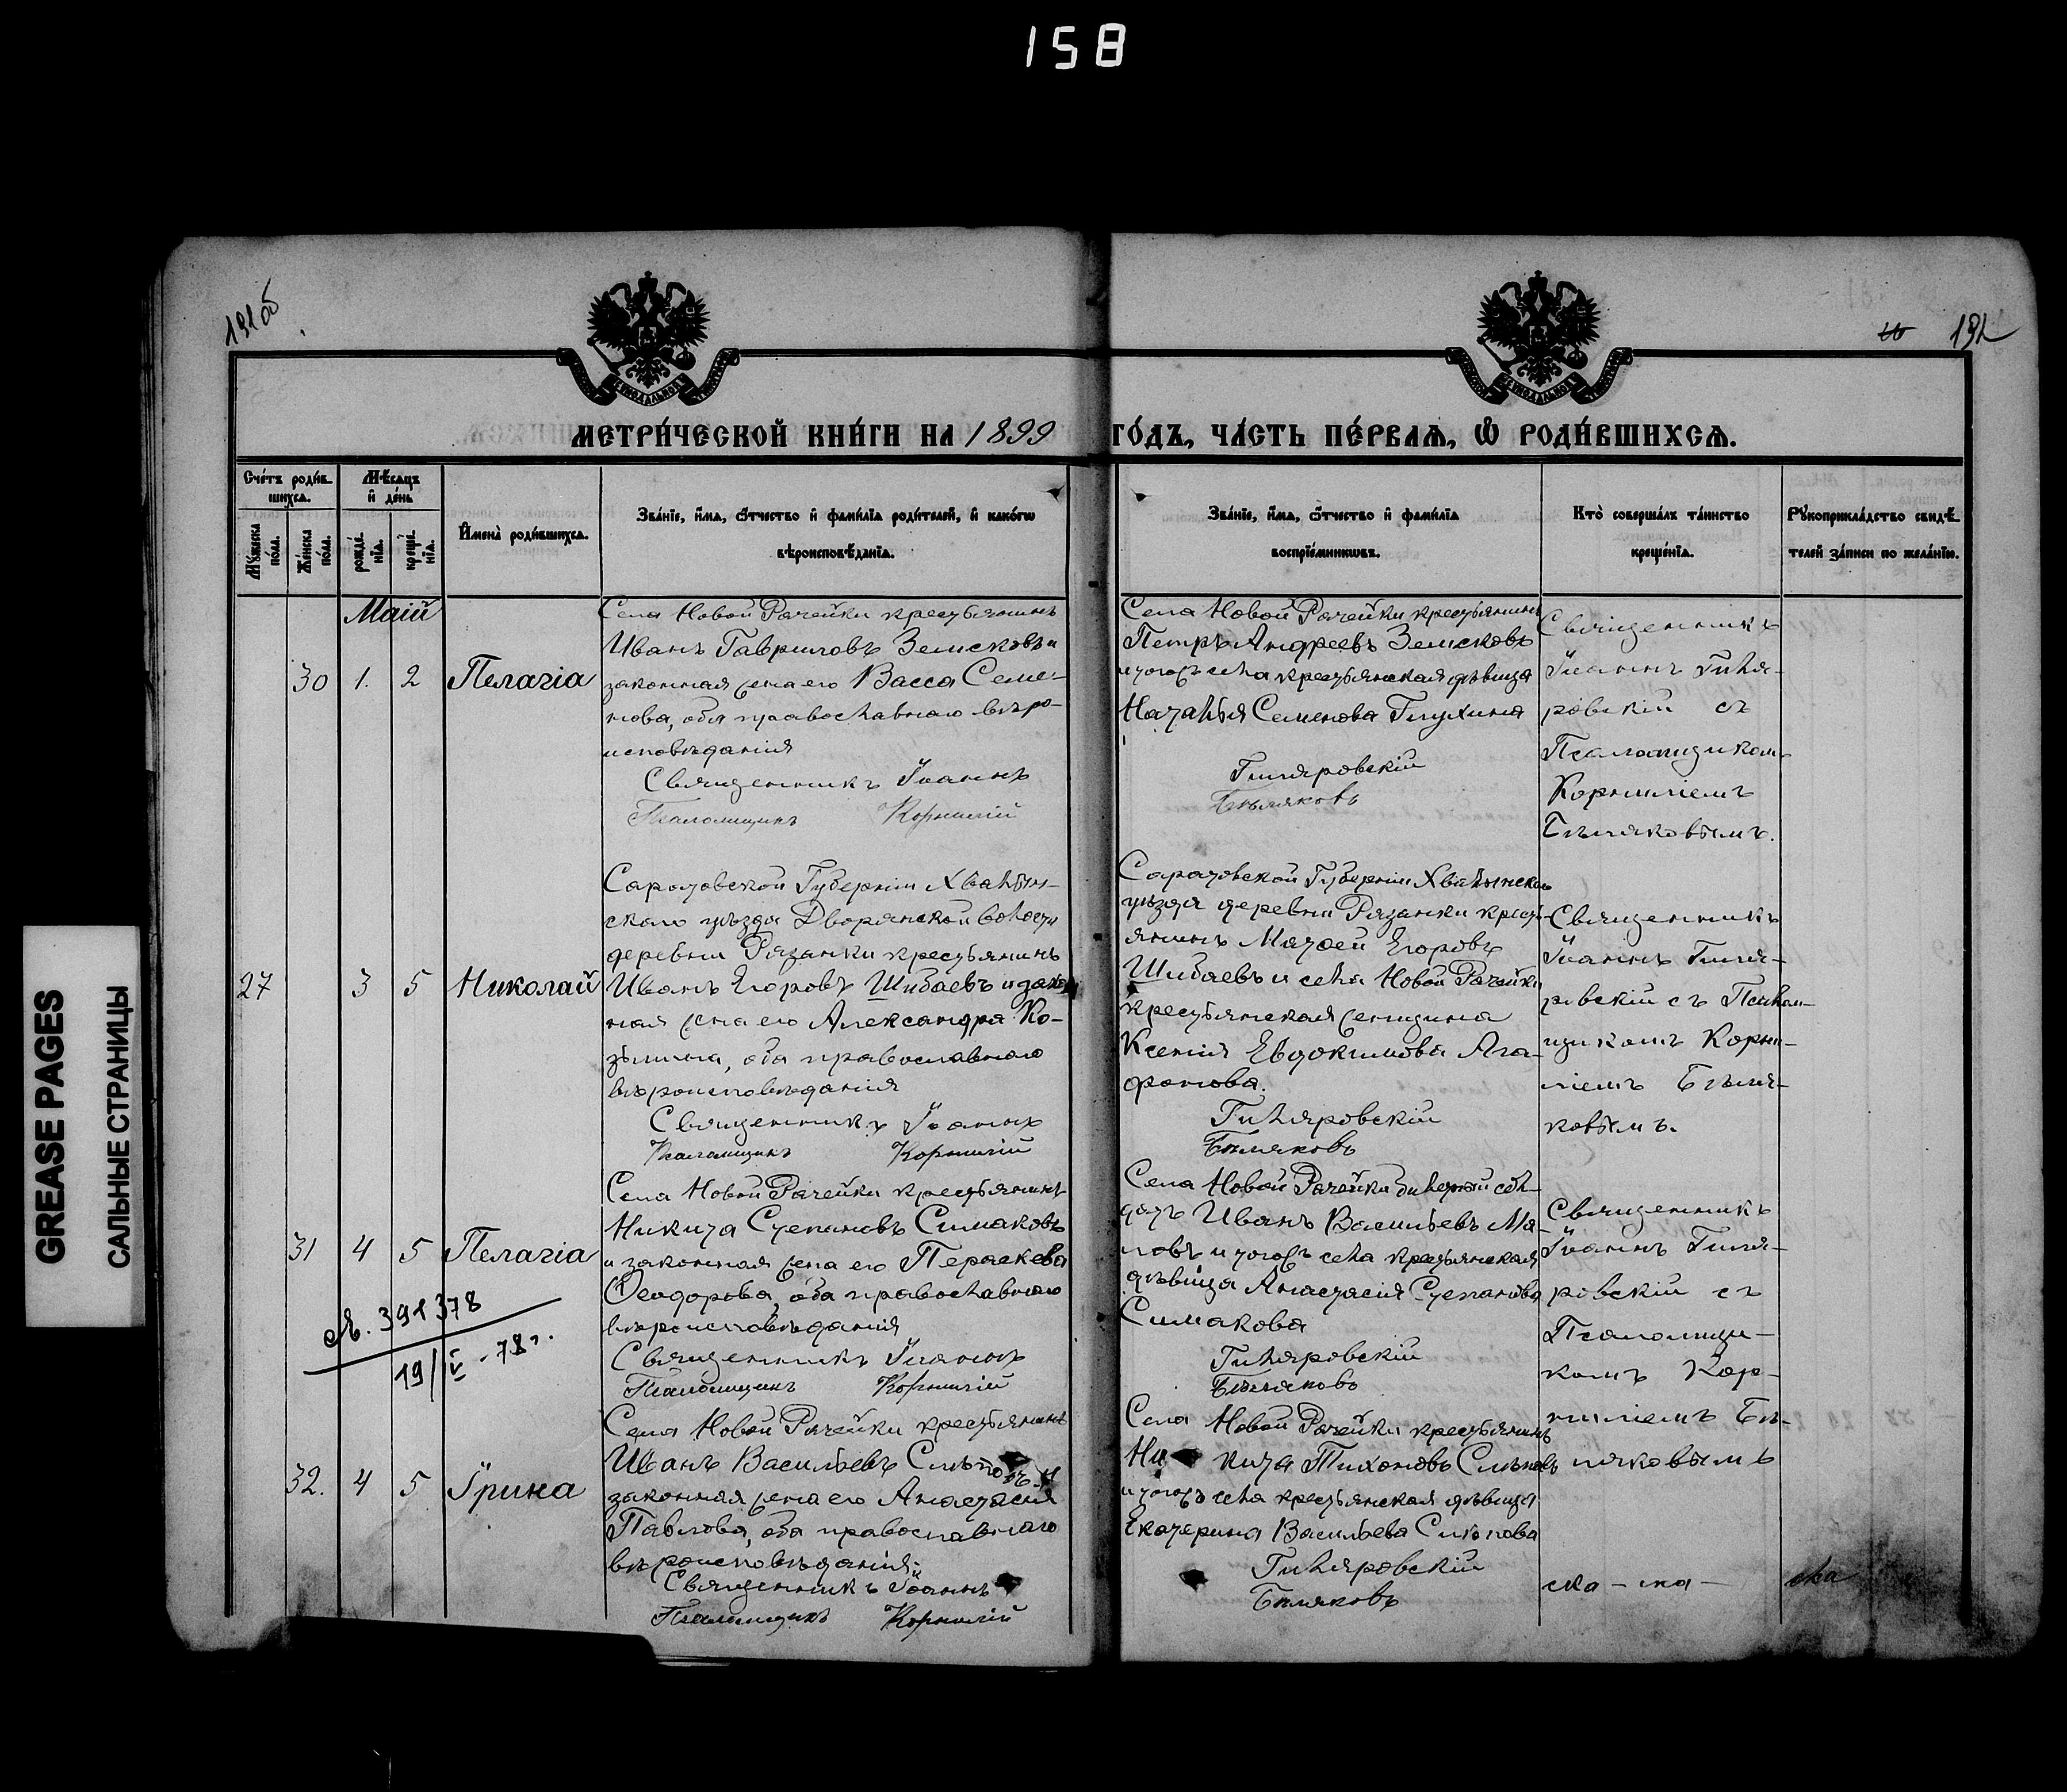 158
GREASE PAGES
САЛЬНЫЕ СТРАНИЦЫ
191об
192
МЕТРИ́ЧЕСКОЙ КНИ́ГИ НА 1899 ГО́ДЪ, ЧА́СТЬ ПЕ́РВАѦ, Ѽ РОДИ́ВШИХСѦ.
Сче́тъ роди́в-
шихсѧ.
Мѣ́сѧцъ
и҆ де́нь
Мꙋ́жеска
по́ла.
Же́нска
по́ла.
рожде́-
нїѧ.
креще́-
нїѧ.
И҆мена̀ роди́вшихсѧ.
Зва́нїе, и҆́мѧ, ѻ҆́тчество и҆ фами́лїѧ роди́телей, и҆ како́гѡ
вѣроисповѣ́данїѧ.
Зва́нїе, и҆́мѧ, ѻ҆́тчество и҆ фами́лїѧ
воспрїе́мникѡвъ.
Кто̀ соверша́лъ та́инство
креще́нїѧ.
Рꙋкоприкла́дство свидѣ́-
телей за́писи по жела́нїю.
Маій
30 1. 2 Пелагіа
Села Новой Рачейки крестьянинъ
Иванъ Гавриловъ Земсковъ и
законная жена его Васса Семе-
нова, оба православнаго вѣро-
исповѣданія
Священникъ Іоаннъ
Псаломщикъ Корнилій
Села Новой Рачейки крестьянинъ
Петръ Андреевъ Земсковъ
и тогожъ села крестьянская дѣвица
Наталья Семенова Глухина
Гиляровскій
Бѣляковъ
Священникъ
Іоаннъ Гиля-
ровскій съ
Псаломщиком
Корниліемъ
Бѣляковымъ.
27 3 5 Николай
Саратовской Губерніи Хвалын-
скаго уѣзда Дворянской волости
деревни Рязанки крестьянинъ
Иванъ Егоровъ Шибаевъ и закон
ная жена его Александра Ко-
зьмина, оба православнаго
вѣроисповѣданія
Священникъ Іоаннъ
Псаломщикъ Корнилій
Саратовской Губерніи Хвалынскаго
уѣзда деревни Рязанки кресть-
янинъ Матѳей Егоровъ
Шибаевъ и села Новой Рачейки
крестьянская женщина
Ксенія Евдокимова Ага-
фонова.
Гиляровскій
Бѣляковъ
Священникъ
Іоаннъ Гиля-
ровскій съ Псалом-
щикомъ Корни-
ліемъ Бѣля-
ковымъ.
31 4 5 Пелагіа
Села Новой Рачейки крестьянинъ
Никита Степановъ Симаковъ
и законная жена его Параскева
Ѳеодорова, оба православнаго
вѣроисповѣданія
Священникъ Іоаннъ
Псаломщикъ Корнилій
Села Новой Рачейки билетный сол-
датъ Иванъ Васильевъ Ма-
ловъ и тогожъ села крестьянская
дѣвица Анастасія Степанова
Симакова
Гиляровскій
Бѣляковъ
Священникъ
Іоаннъ Гиля-
ровскій съ
Псаломщи-
комъ Кор-
ниліемъ Бѣ-
ляковымъ
391378
19/IV-78г.
32. 4 5 Ірина
Села Новой Рачейки крестьянинъ
Иванъ Васильевъ Слѣповъ и
законная жена его Анастасія
Павлова, оба православнаго
вѣроисповѣданія.
Священникъ Іоаннъ
Псаломщикъ Корнилій
Села Новой Рачейки крестьянинъ
Никита Тихоновъ Слѣповъ
и тогожъ села крестьянская дѣвица
Екатерина Васильева Слѣпова
Гиляровскій
Бѣляковъ